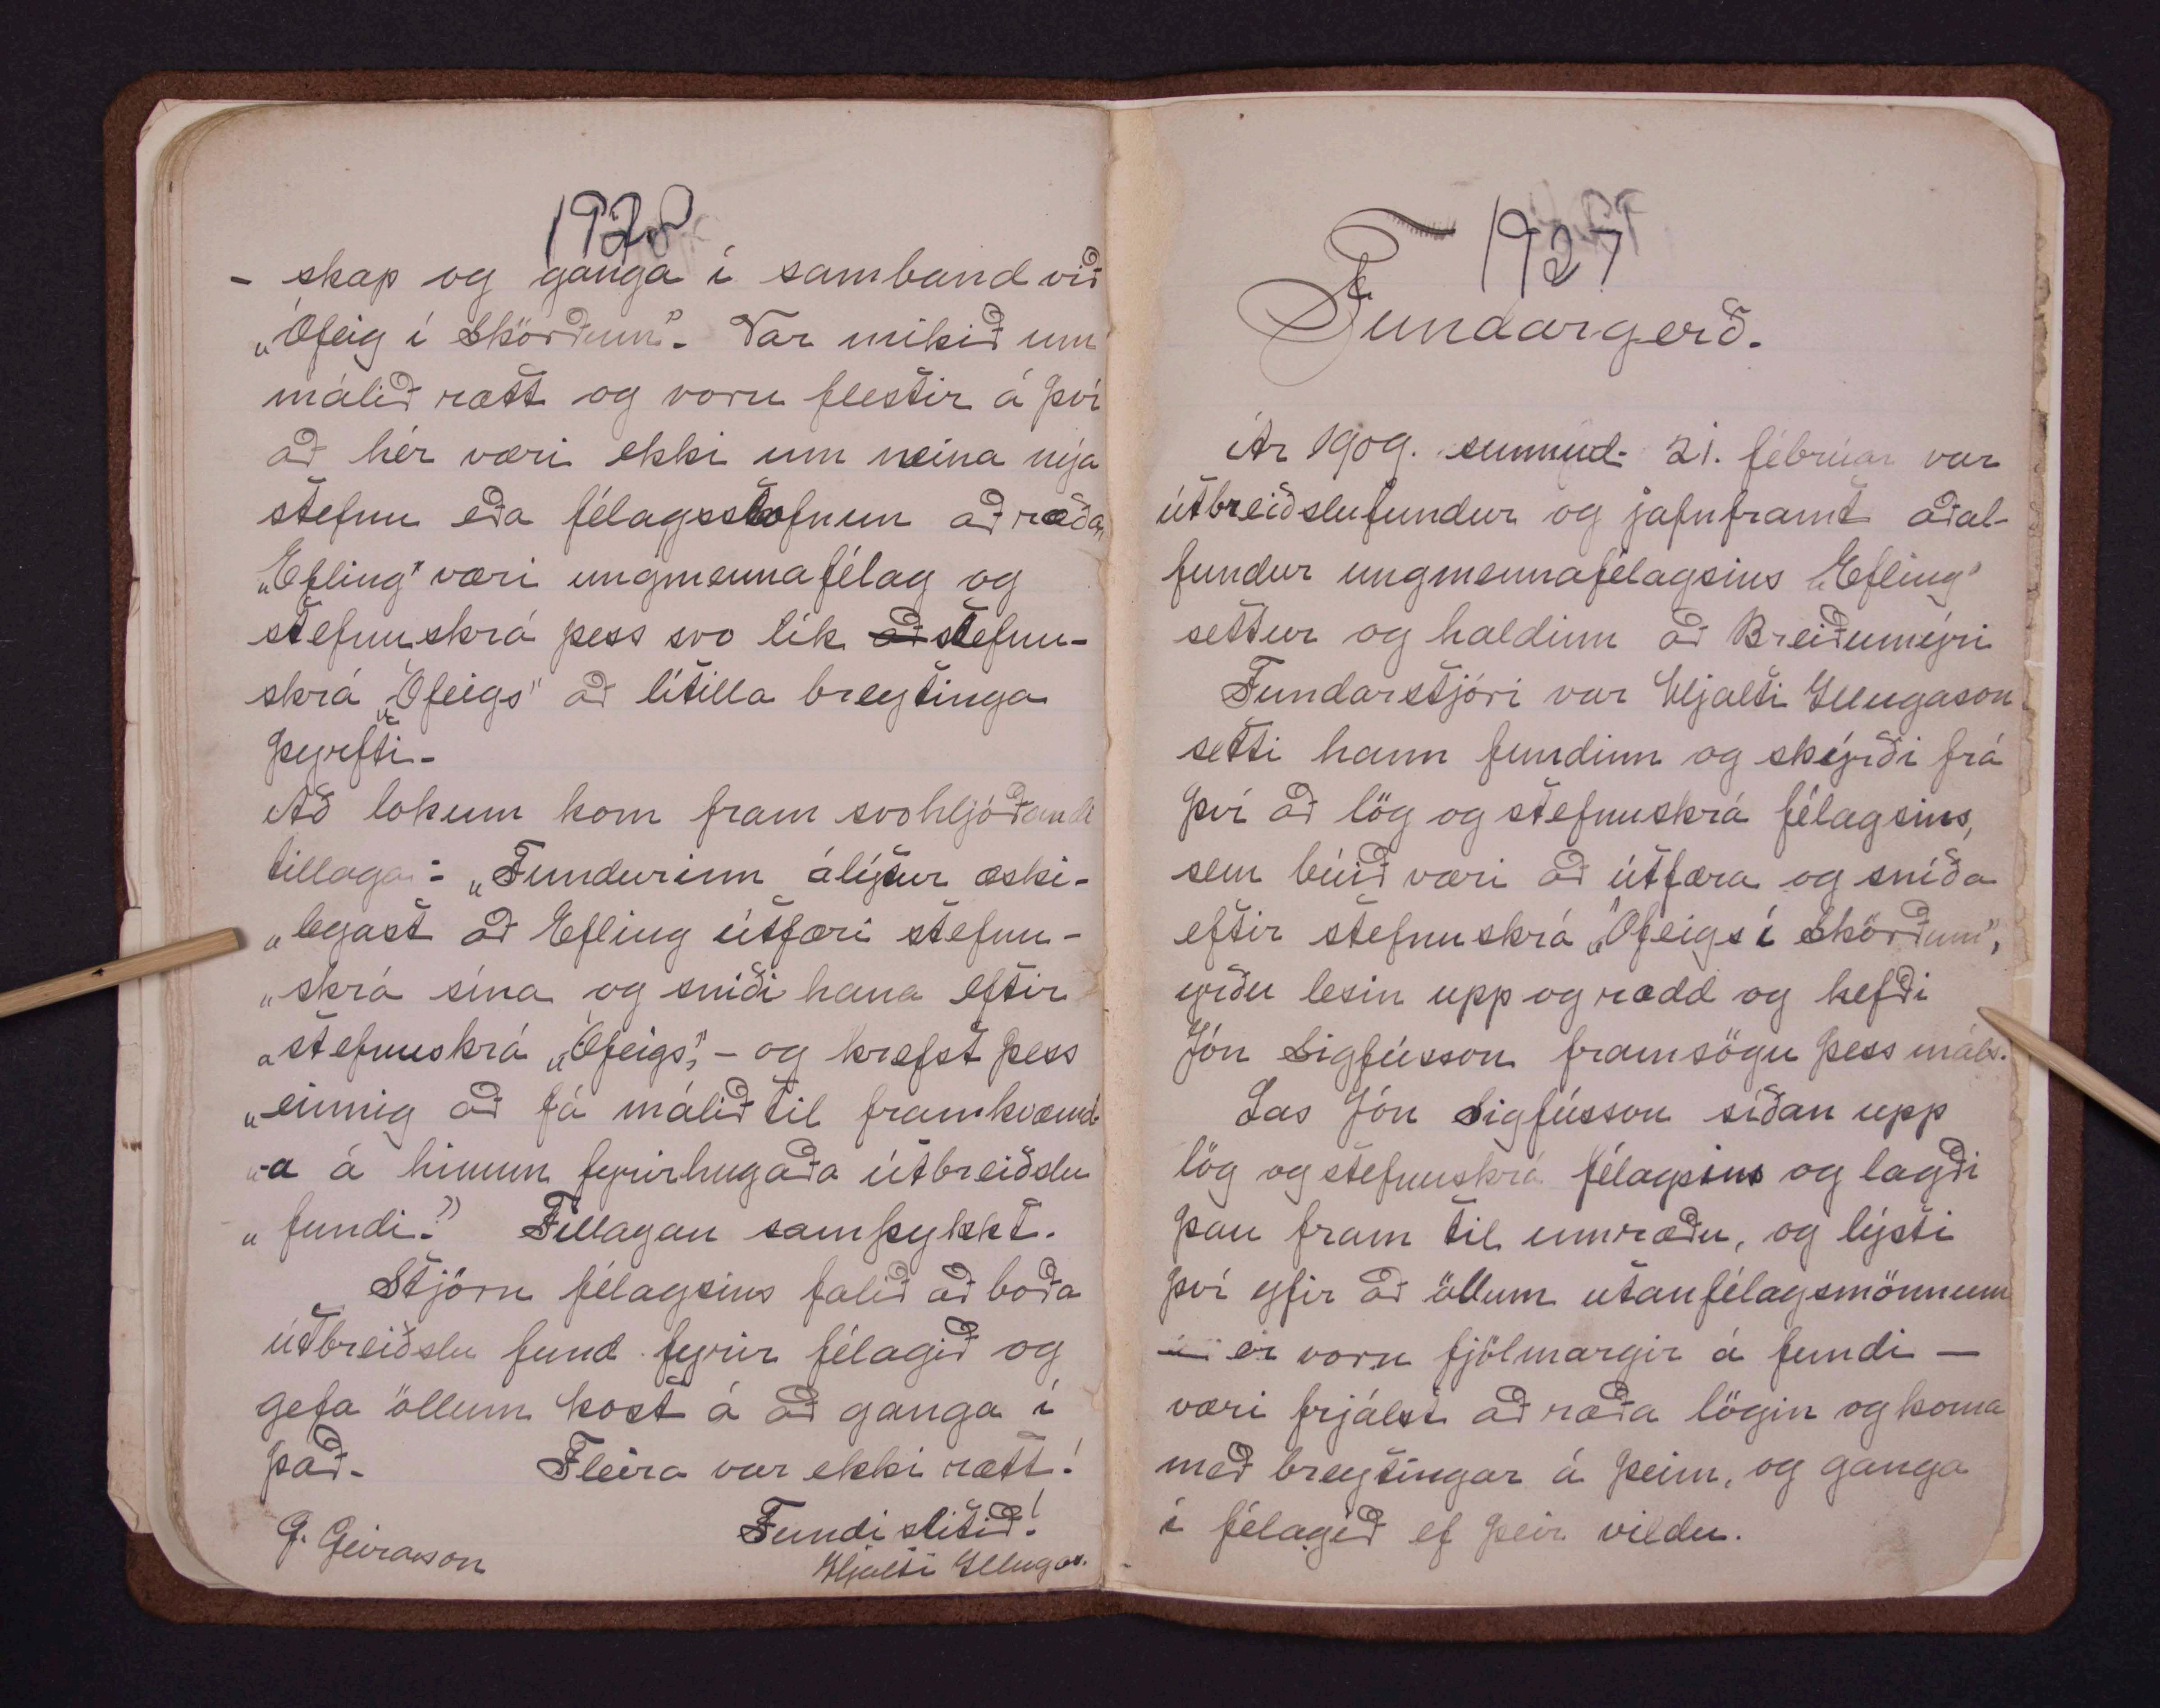 1928
- skap og ganga í samband við
„Ófeig í Skörðum“. Var mikið um
málið rætt og voru flestir á því
að hér væri ekki um neina nýja
stefnu eða félagsstofnun að ræða,
„Efling“ væri ungmennafélag og
stefnuskrá þess svo lík að stefnu-
skrá „Ófeigs“ að lítilla breytinga
þyrfti-
Að lokum kom fram svohljóðandi
tillaga: „Fundurinn álýtur æski-
„legast að Efling útfæri stefnu-
„skrá sína og sníði hana eftir
„stefnuskrá „Ófeigs“, - og krefst þess
„einnig að fá málið til framkvæmd-
„-a á hinum fyrirhugaða útbreiðslu
„fundi.“ Tillagan samþykkt.
Stjórn félagsins falið að boða
útbreiðslu fund fyrir félagið og
gefa öllum kost á að ganga í
það- Fleira var ekki rætt!
Fundi slitið!
G. Geirason Hjalti Illugas.
1927
Fundargerð.
Ár 1909. sunnud. 21. febrúar var
útbreiðslufundur og jafnframt aðal-
fundur ungmennafélagsins „Efling“
settur og haldinn að Breiðumýri
Fundarstjóri var Hjalti Illugason
setti hann fundinn og skýrði frá
því að lög og stefnuskrá félagsins,
sem búið væri að útfæra og sníða
eftir stefnuskrá „Ófeigs í Skörðum“,
yrðu lesin upp og rædd og hefði
Jón Sigfússon framsögu þess máls.
Las Jón Sigfússon síðan upp
lög og stefnuskrá félagsins og lagði
þau fram til umræðu, og lýsti
því yfir að öllum utanfélagsmönnum
— er voru fjölmargir á fundi —
væri frjálst að ræða lögin og koma
með breytingar á þeim, og ganga
í félagið ef þeir vildu.